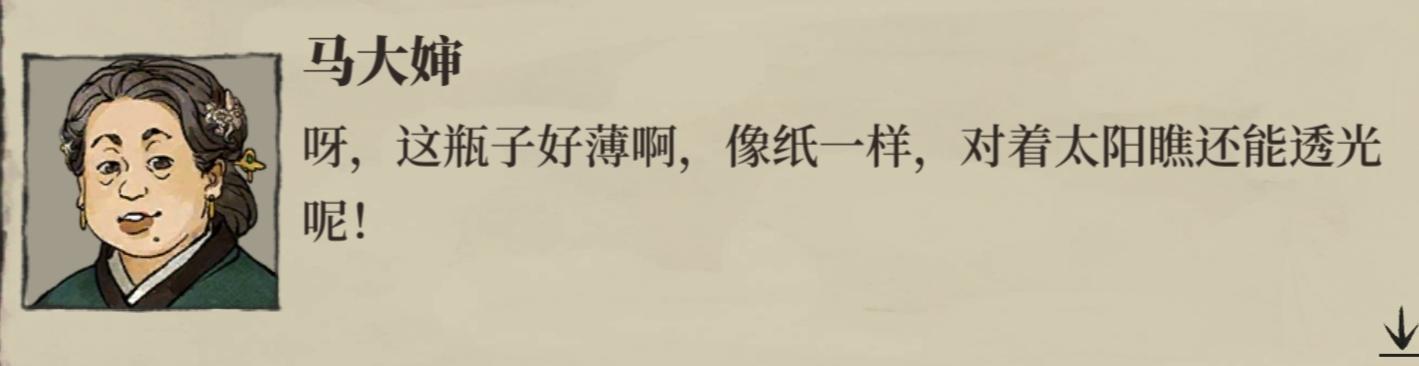 马大婶
呀，这瓶子好薄啊，像纸一样，对着太阳瞧还能透光
呢！